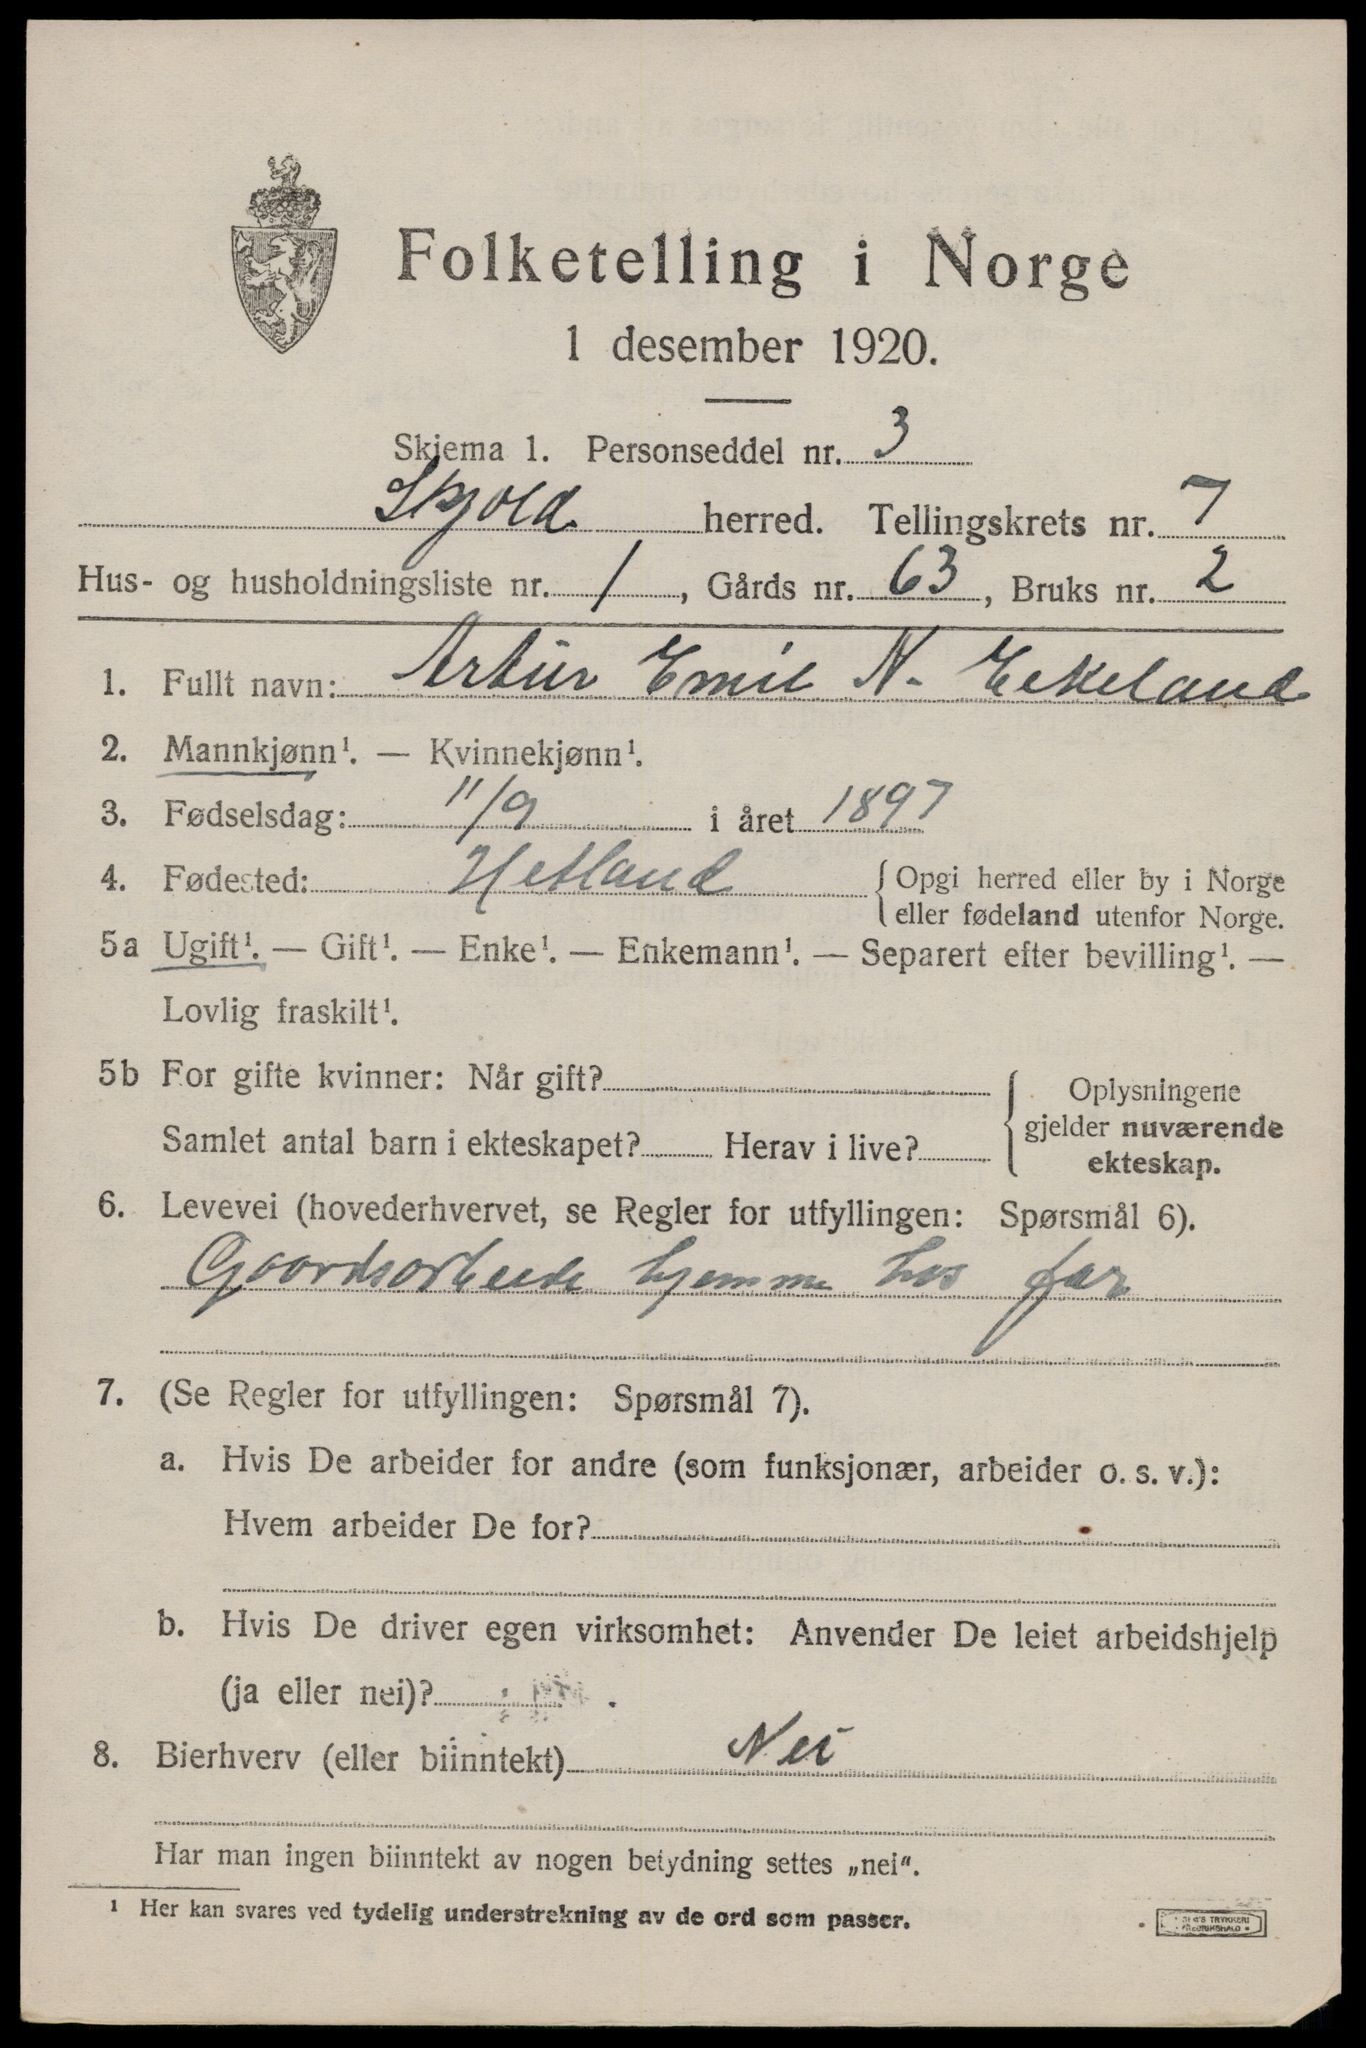 Folketelling i Norge
1 desember 1920.
Skjema 1. Personseddel nr. 3
Skjold herred. Tellingskrets nr. 7
Hus- og husholdningsliste nr. 1, Gårds nr. 63, Bruks nr. 2
1. Fullt navn: Artur Emil N. Eikeland
2. Mannkjønn¹. — Kvinnekjønn¹.
3. Fødselsdag: 11/9 i året 1897
4. Fødested: Hetland {Opgi herred eller by i Norge
eller fødeland utenfor Norge.
5a Ugift¹. — Gift¹. — Enke¹. — Enkemann¹. — Separert efter bevilling¹. —
Lovlig fraskilt¹.
5b For gifte kvinner: Når gift? {Oplysningene
gjelder nuværende
Samlet antal barn i ekteskapet? Herav i live?
ekteskap.
6. Levevei (hovederhvervet, se Regler for utfyllingen: Spørsmål 6).
Gaardsarbeide hjemme hos far
7. (Se Regler for utfyllingen: Spørsmål 7).
a. Hvis De arbeider for andre (som funksjonær, arbeider o. s. v.):
Hvem arbeider De for?
b. Hvis De driver egen virksomhet: Anvender De leiet arbeidshjelp
(ja eller nei)?
8. Bierhverv (eller biinntekt) Nei
Har man ingen biinntekt av nogen betydning settes „nei“.
¹ Her kan svares ved tydelig understrekning av de ord som passer.
TRYKKERI